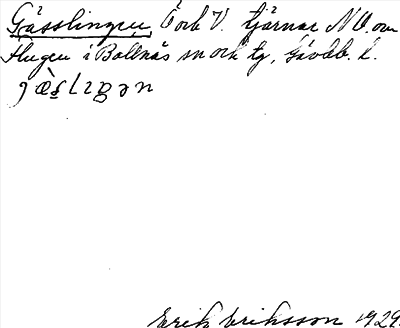 Gässlingen, Ö och V. tjärnar NV. om
Flugen i Bollnäs sn och tg, Gävleb. l.
Erik Eriksson 1929.